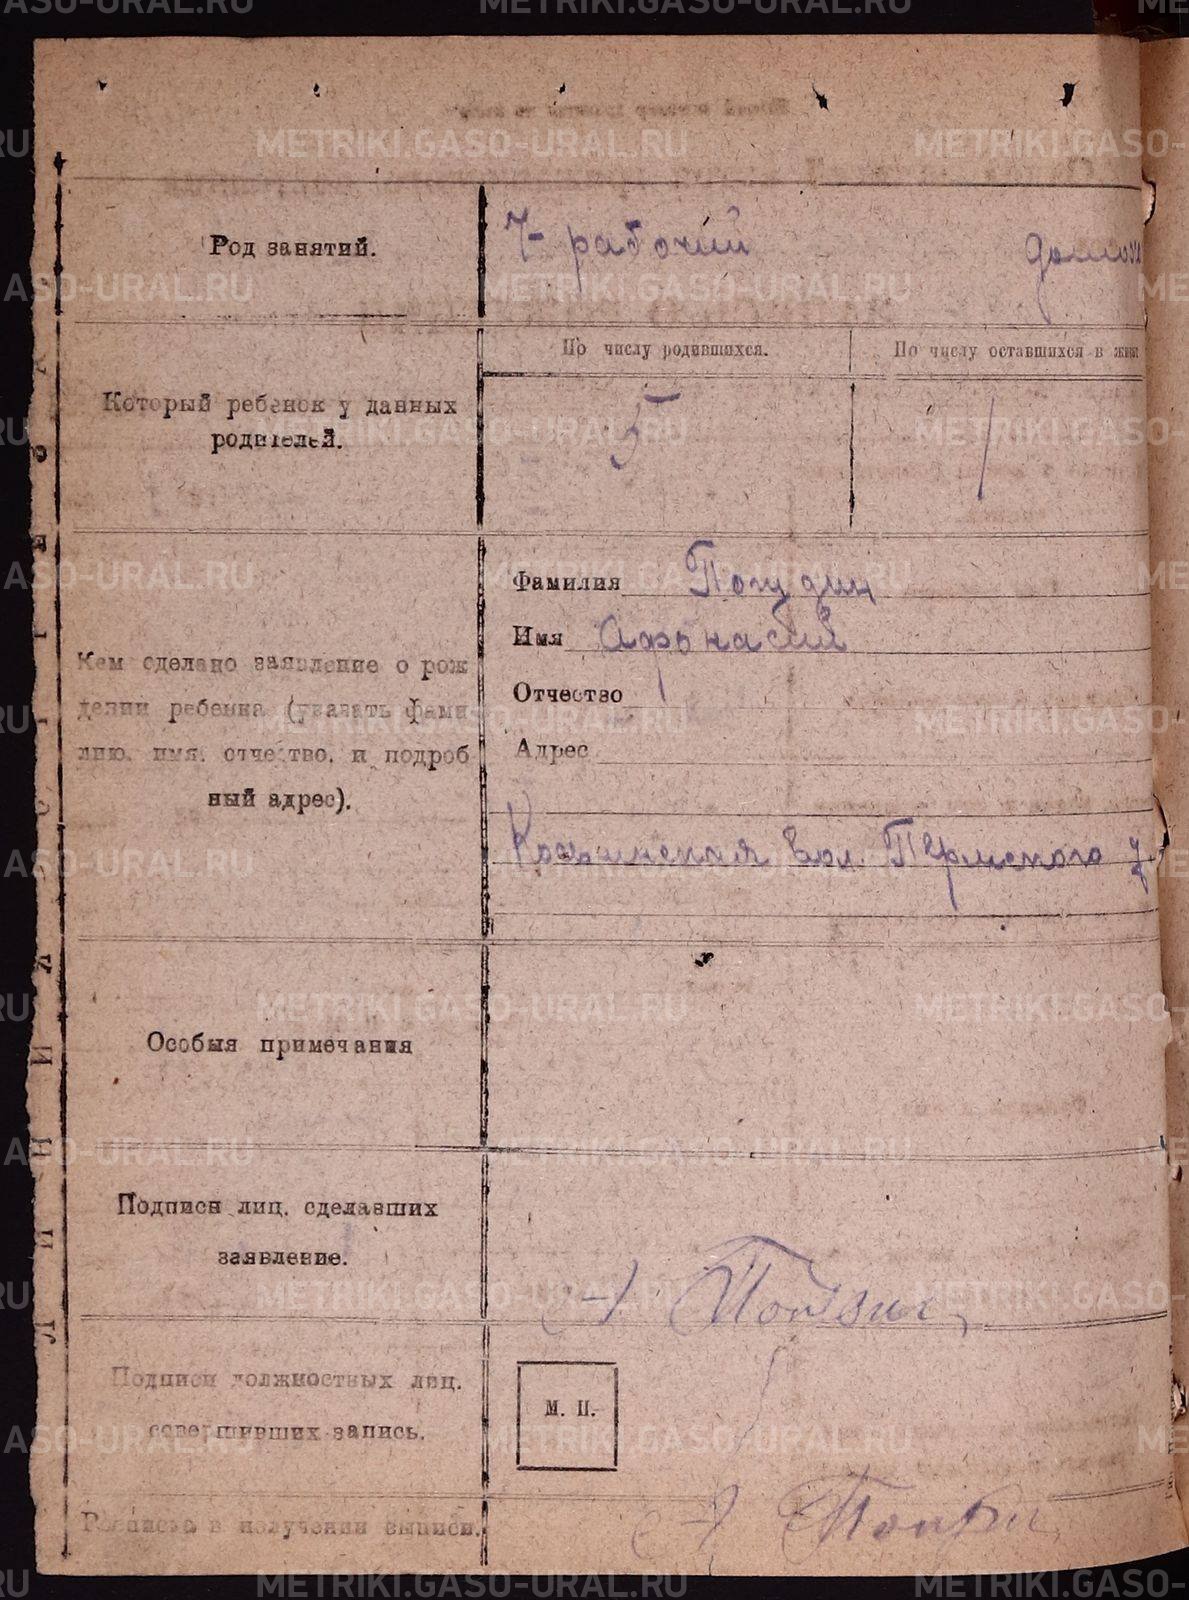 Род занятий.
7- рабочий домохо
По числу родившихся. По числу оставшихся в жив
Который ребенок у данных
родителей.
5 1
Фамилия Погудин
Имя Афонасий
Отчество
Адрес
Кем сделано заявление о рож
дении ребенка (указать фами
лию, имя, отчество, и подроб
ный адрес).
вол. Пермского у
Особыя примечания
Подписи лиц, сделавших
заявление.
Подписи должностных лиц,
совершивших запись.
М. П.
Росписью в получении выписи.
ЛИНИЯ
METRIKI.GASO-URAL.RU